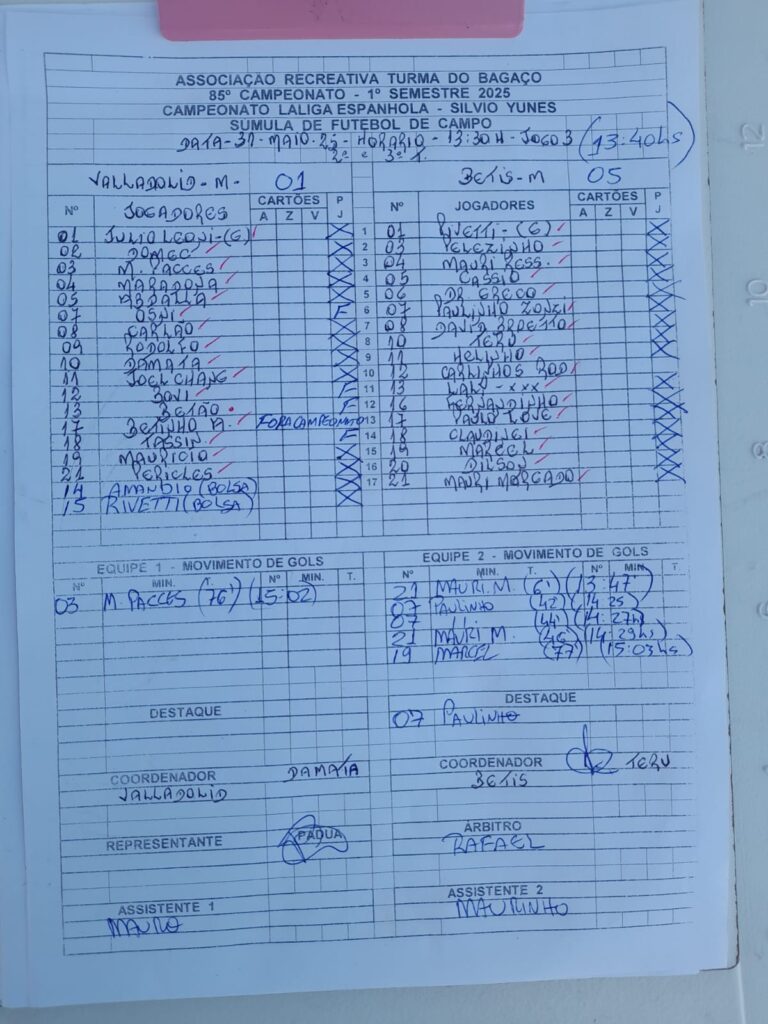 ASSOCIAÇÃO RECREATIVA TURMA DO BAGAÇO
85º CAMPEONATO - 1º SEMESTRE 2025
CAMPEONATO LALIGA ESPANHOLA - SILVIO YUNES
SÚMULA DE FUTEBOL DE CAMPO
DATA-31-MAIO-25-HORARIO-13:30H-JOGO 3 (13:40hs)
2ª e 3ª T.
VALLADOLID-M- 01 BETIS-M 05
Nº JOGADORES CARTÕES P Nº JOGADORES CARTÕES P
A Z V J A Z V J
01 JULIO LEONI-(G) X 1 01 RIVETTI-(G) X
02 DOMEC X 2 03 PELEZINHO X
03 M. PACCES X 3 04 MAURI RESS. X
04 MARADONA X 4 05 CASSIO X
05 ABDALLA X 5 06 DR GRECO X
07 OSNI F 6 07 PAULINHO ZONZI X
08 CARLÃO X 7 08 DAVID BRRETTO X
09 RODOLFO X 8 10 TERU X
10 DAMATA X 9 11 HELINHO X
11 JOEL CHANG X 10 12 CARLINHOS ROD
12 BOVI F 11 13 WALY-xxx X
13 BETÃO F 12 16 FERNANDINHO X
17 BETINHO A. FORA CAMPEONATO 13 17 PAULO LOVE X
18 TASSIN F 14 18 CLAUDINEI X
19 MAURICIO X 15 19 MARCEL X
21 PERICLES X 16 20 DILSON X
14 AMANDIO (BOLSA) X 17 21 MAURI MORGADO X
15 RIVETTI (BOLSA) X
EQUIPE 1 - MOVIMENTO DE GOLS EQUIPE 2 - MOVIMENTO DE GOLS
Nº MIN. T. Nº MIN. T. Nº MIN. T. Nº MIN. T.
03 M. PACCES (76') (15:02) 21 MAURI.M. (6') (13:47')
07 PAULINHO (42) (14:25)
07 (44') (14:27h)
21 MAURI M. (46') (14:29hs)
19 MARCEL (77') (15:03hs)
DESTAQUE DESTAQUE
07 PAULINHO
COORDENADOR DAMATA COORDENADOR TERU
VALLADOLID BETIS
REPRESENTANTE PADUA ÁRBITRO
RAFAEL
ASSISTENTE 1 ASSISTENTE 2
MAURO MAURINHO